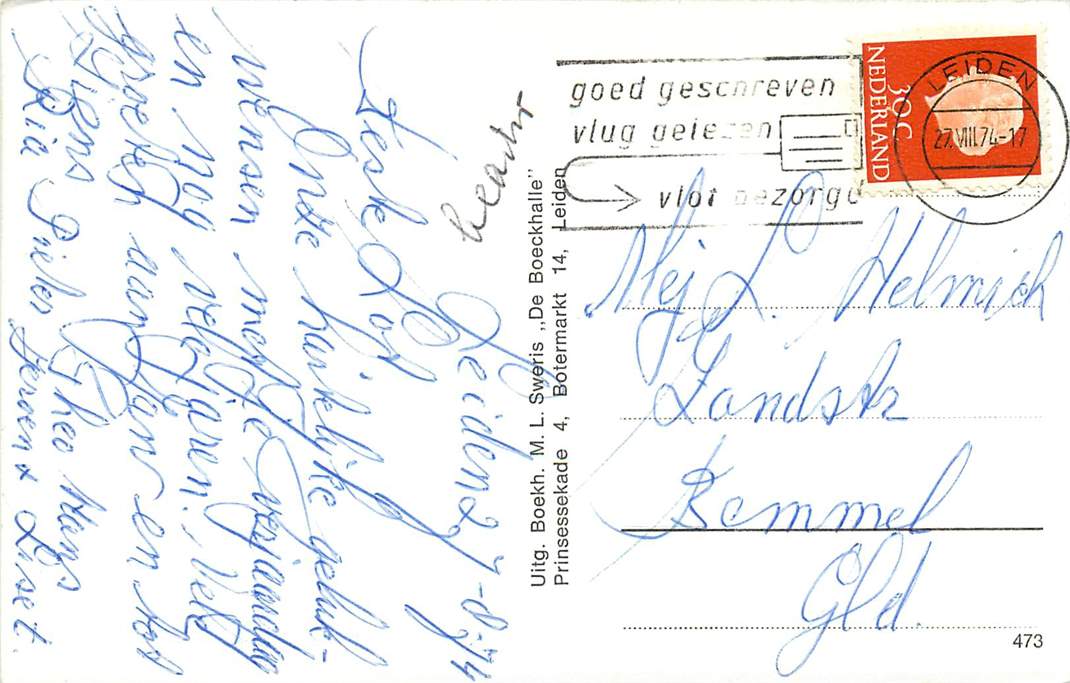 Leiden 27-8-74
Onze hartelijke geluk-
wensen met je verjaardag
en nog vele jaren. Veel
groetjes aan Jan en tot
ziens Theo Hans
Ria Jeroen x Liset.
Uitg. Boekh. M. L. Sweris „De Boeckhalle"
Prinsessekade 4, Botermarkt 14, Leiden
goed geschreven
vlug gelezen
vlot bezorgd
NEDERLAND
30C
LEIDEN
27.VIII.74-17
Mej L. Helmich
Landstr
Bemmel
Gld.
473